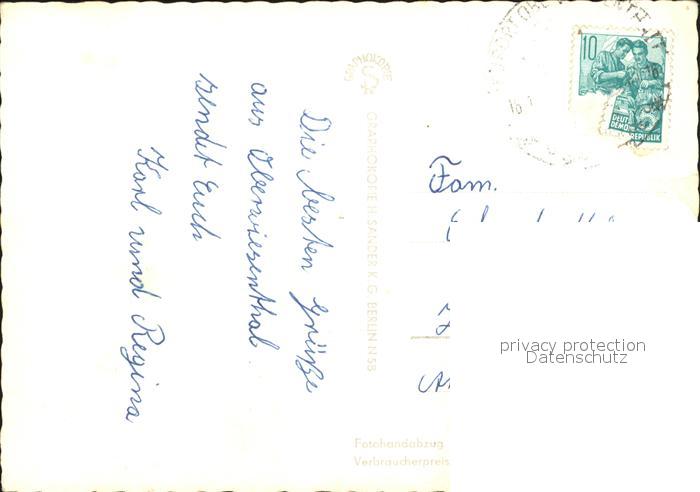 Die besten Grüße
aus Oberwiesenthal
sendet Euch
Karl und Regina
GRAPHOKOPIE
GRAPHOKOPIE H. SANDER K. G. BERLIN N 58
10
DEUT
DEMO
REPUBLIK
Fam.
privacy protection
Datenschutz
Fotohandabzug
Verbraucherpreis